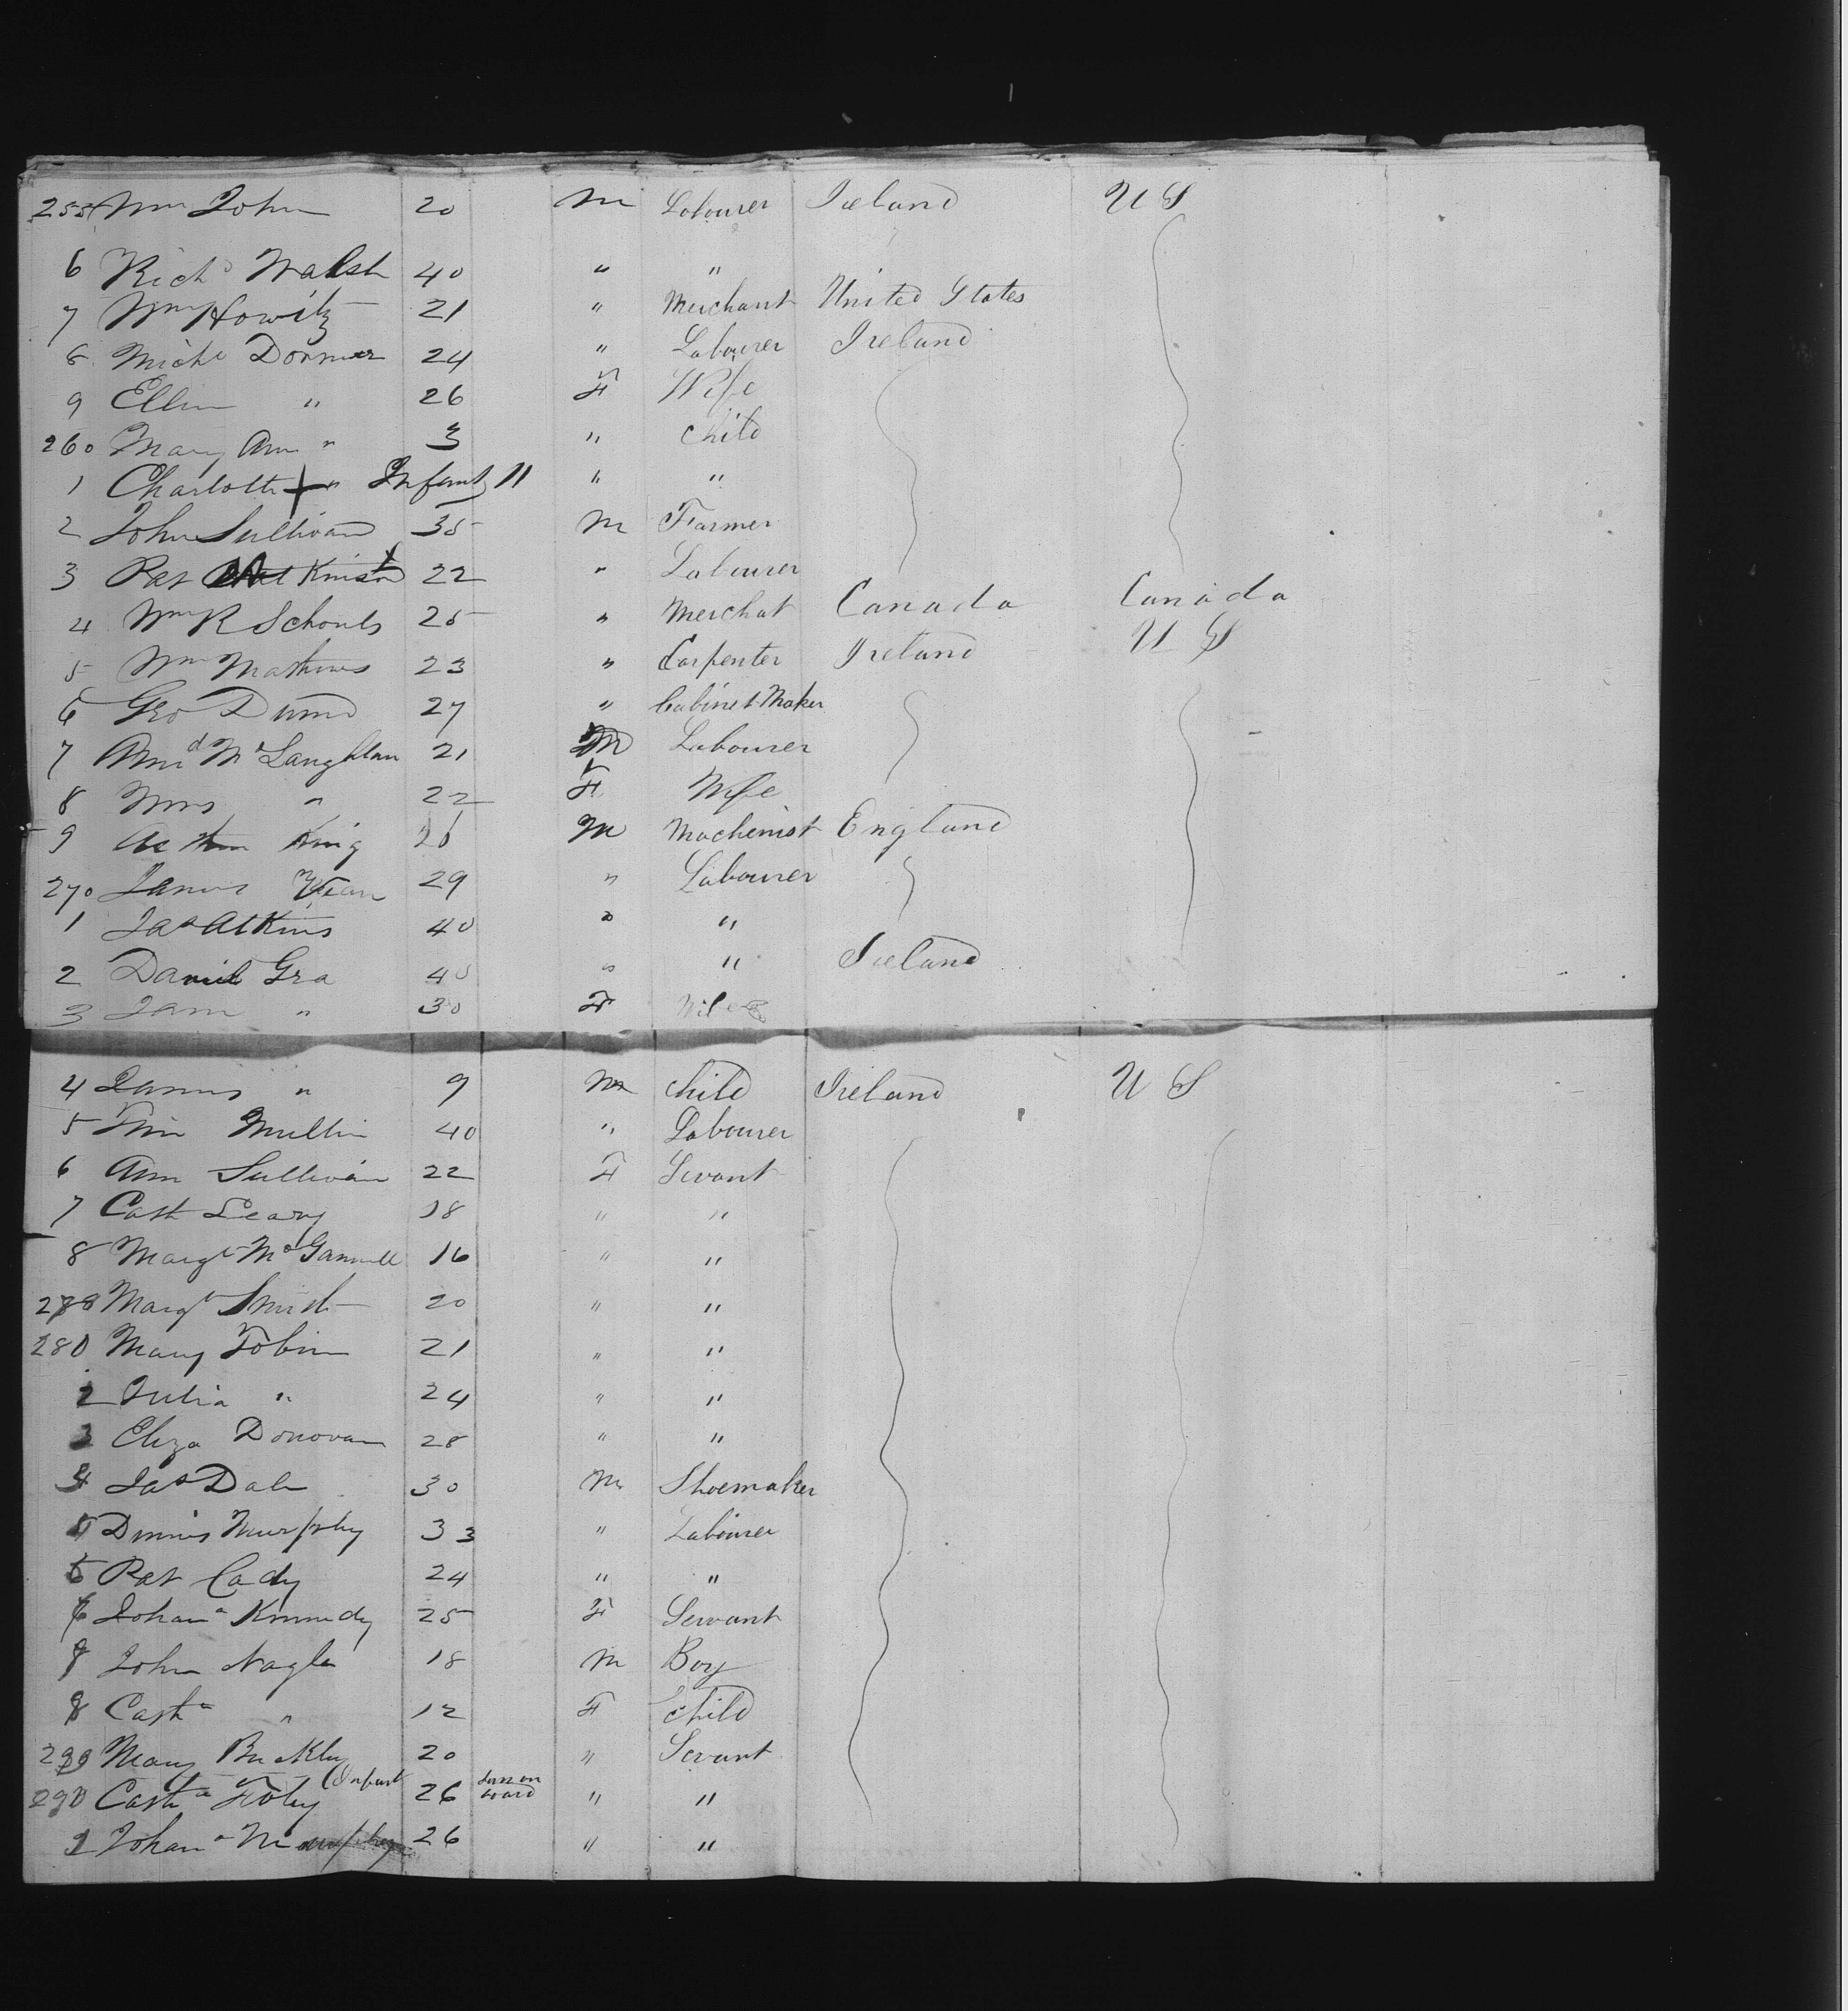 255 Wm John 20 M Labourer Ireland U S
6 Richd Walsh 40 " "
7 Wm Howitz 21 " Merchant United States
8 Michl Dormer 24 " Labourer Ireland
9 Ellen " 26 F Wife
260 Mary Ann " 3 " Child
1 Charlotte " Infant 11 " "
2 John Sullivan 35 M Farmer
3 Pat Atkinson 22 " Labourer
4 Wm R Schouls 25 " Merchat Canada Canada
5 Wm Mathews 23 " Carpenter Ireland U S
6 Geo Dunn 27 " Cabinet Maker
7 McLaughlan 21 M Labourer
8 Mrs " 22 F Wife
9 King 26 M Machenist England
270 James 29 " Labourer
1 Jas Atkins 40 " "
2 Daniel Gra 40 " " Ireland
3 Jam " 30 F Wife
4 James " 9 M Child Ireland U S
5 Tim Mullin 40 " Labourer
6 Ann Sullivan 22 F Servant
7 Cath Leary 18 " "
8 Margt McGannell 16 " "
Margt Smith 20 " "
280 Mary Tobin 21 " "
2 Julia " 24 " "
3 Eliza Donovan 28 " "
4 Jas Dale 30 M Shoemaker
5 Dennis Murphy 33 " Labourer
Pat Cady 24 " "
Johana Kennedy 25 F Servant
John Nagle 18 M Boy
Casth " 12 F Child
Mary Buckley 20 " Servant
290 Casth Foley (Infant 26 born on board " "
Johana Murphy 26 " "